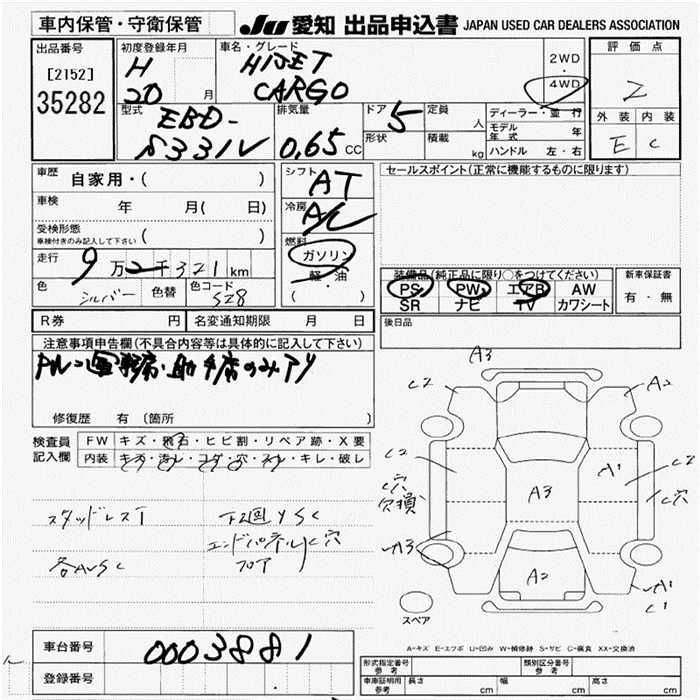 車内保管・守衛保管
JU 愛知 出品申込書 JAPAN USED CAR DEALERS ASSOCIATION
出品番号
[2152]
35282
初度登録年月
H
20 月
車名・グレード
HIJET
CARGO
2WD
・
4WD
評価点
2
外装 内装
E C
型式
EBD-
S331V
排気量
0.65 CC
ドア 5
形状
定員 人
積載 kg
ディーラー・並行
モデル年式 年
ハンドル 左・右
車歴 自家用・( )
車検 年 月( 日)
受検形態
車検付きのみ記入して下さい ( )
走行 9万2千321km
色 シルバー 色替 色コード S28
シフト AT
冷房 A/C
燃料
ガソリン
軽・油
( )
セールスポイント(正常に機能するものに限ります)
装備品(純正品に限り○をつけてください)
PS PW エアB AW
SR ナビ TV カワシート
新車保証書
有・無
R券 円 名変通知期限 月 日
後日品
注意事項申告欄(不具合内容等は具体的に記入して下さい)
修復歴 有 (箇所 )
検査員
記入欄
FW キズ・飛石・ヒビ割・リペア跡・X要
内装 キズ・汚レ・コゲ・穴・スレ・キレ・破レ
スタッドレスT
各AUSC
下回YSC
エンドパネルC穴
フロア
A3
C2
A2
C2
A1
C穴
欠損
A3
C穴
A3
A2
A1
C1
スペア
A-キズ E-エクボ U-凹み W-補修跡 S-サビ C-腐食 XX-交換済
車台番号 0003881
登録番号
形式指定番号
参考
類別区分番号
参考
車庫証明用
参考
長さ cm 幅 cm 高さ cm